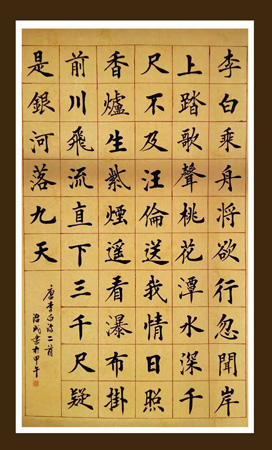 李白乘舟將欲行忽聞岸
上踏歌聲桃花潭水深千
尺不及汪倫送我情日照
香爐生紫煙遥看瀑布掛
前川飛流直下三千尺疑
是銀河落九天
唐李白诗二首